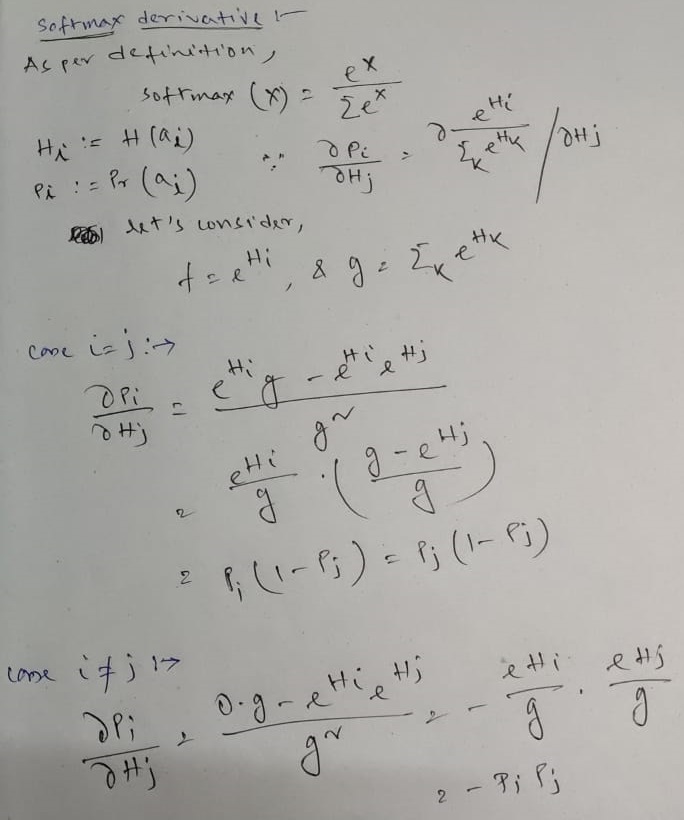 Softmax derivative :-
As per definition,
softmax (x) = e^x / Σe^x
H_i := H(a_i)
P_i := Pr(a_i)
∵ ∂P_i/∂H_j = ∂ e^{H_i}/Σ_K e^{H_K} / ∂H_j
let's consider,
f = e^{H_i}, & g = Σ_K e^{H_K}
case i = j :→
∂P_i/∂H_j = (e^{H_i} g - e^{H_i} e^{H_j}) / g^2
= e^{H_i}/g · ((g - e^{H_j})/g)
= P_i (1 - P_j) = P_j (1 - P_j)
case i ≠ j :→
∂P_i/∂H_j = (0·g - e^{H_i} e^{H_j}) / g^2 = - e^{H_i}/g · e^{H_j}/g
= - P_i P_j